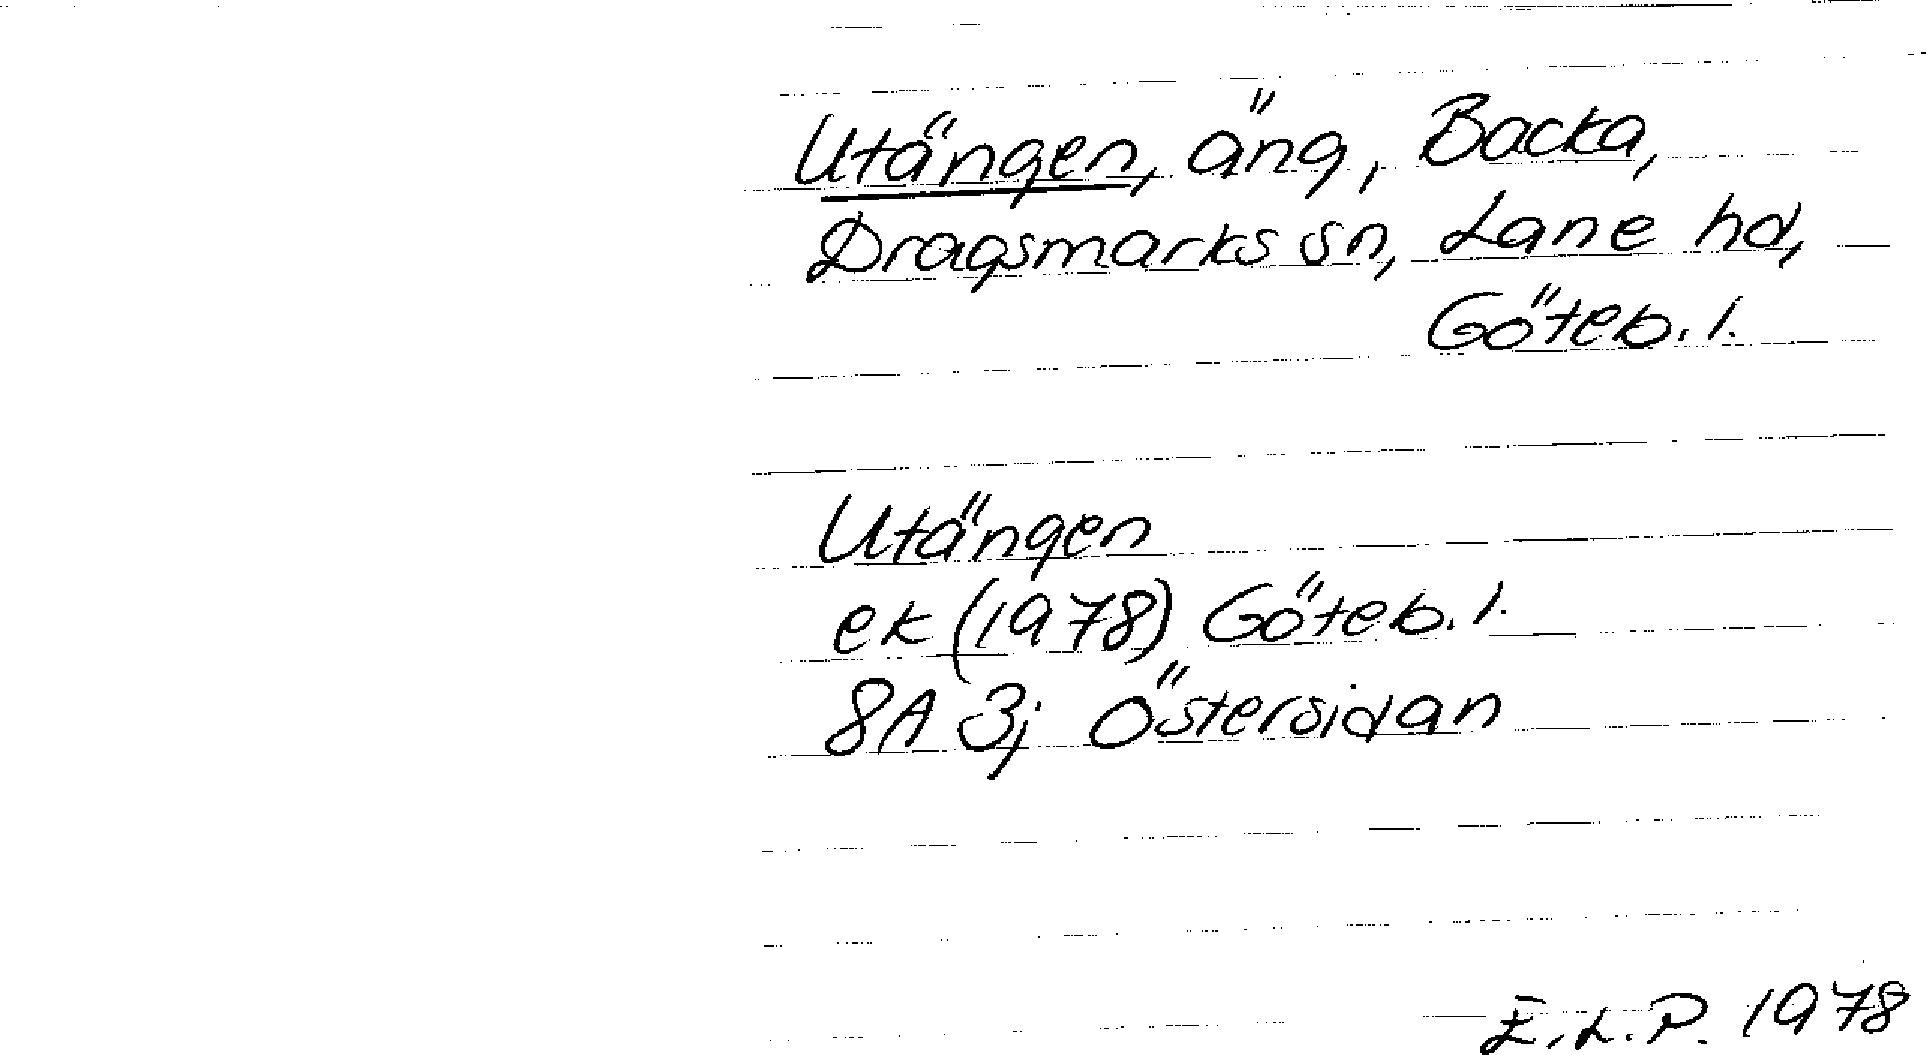 Utängen, äng, Backa,
Dragsmarks sn, Lane hd,
Göteb. l.
Utängen
ek (1978) Göteb. l.
8A 3j Östersidan
E.L.P. 1978